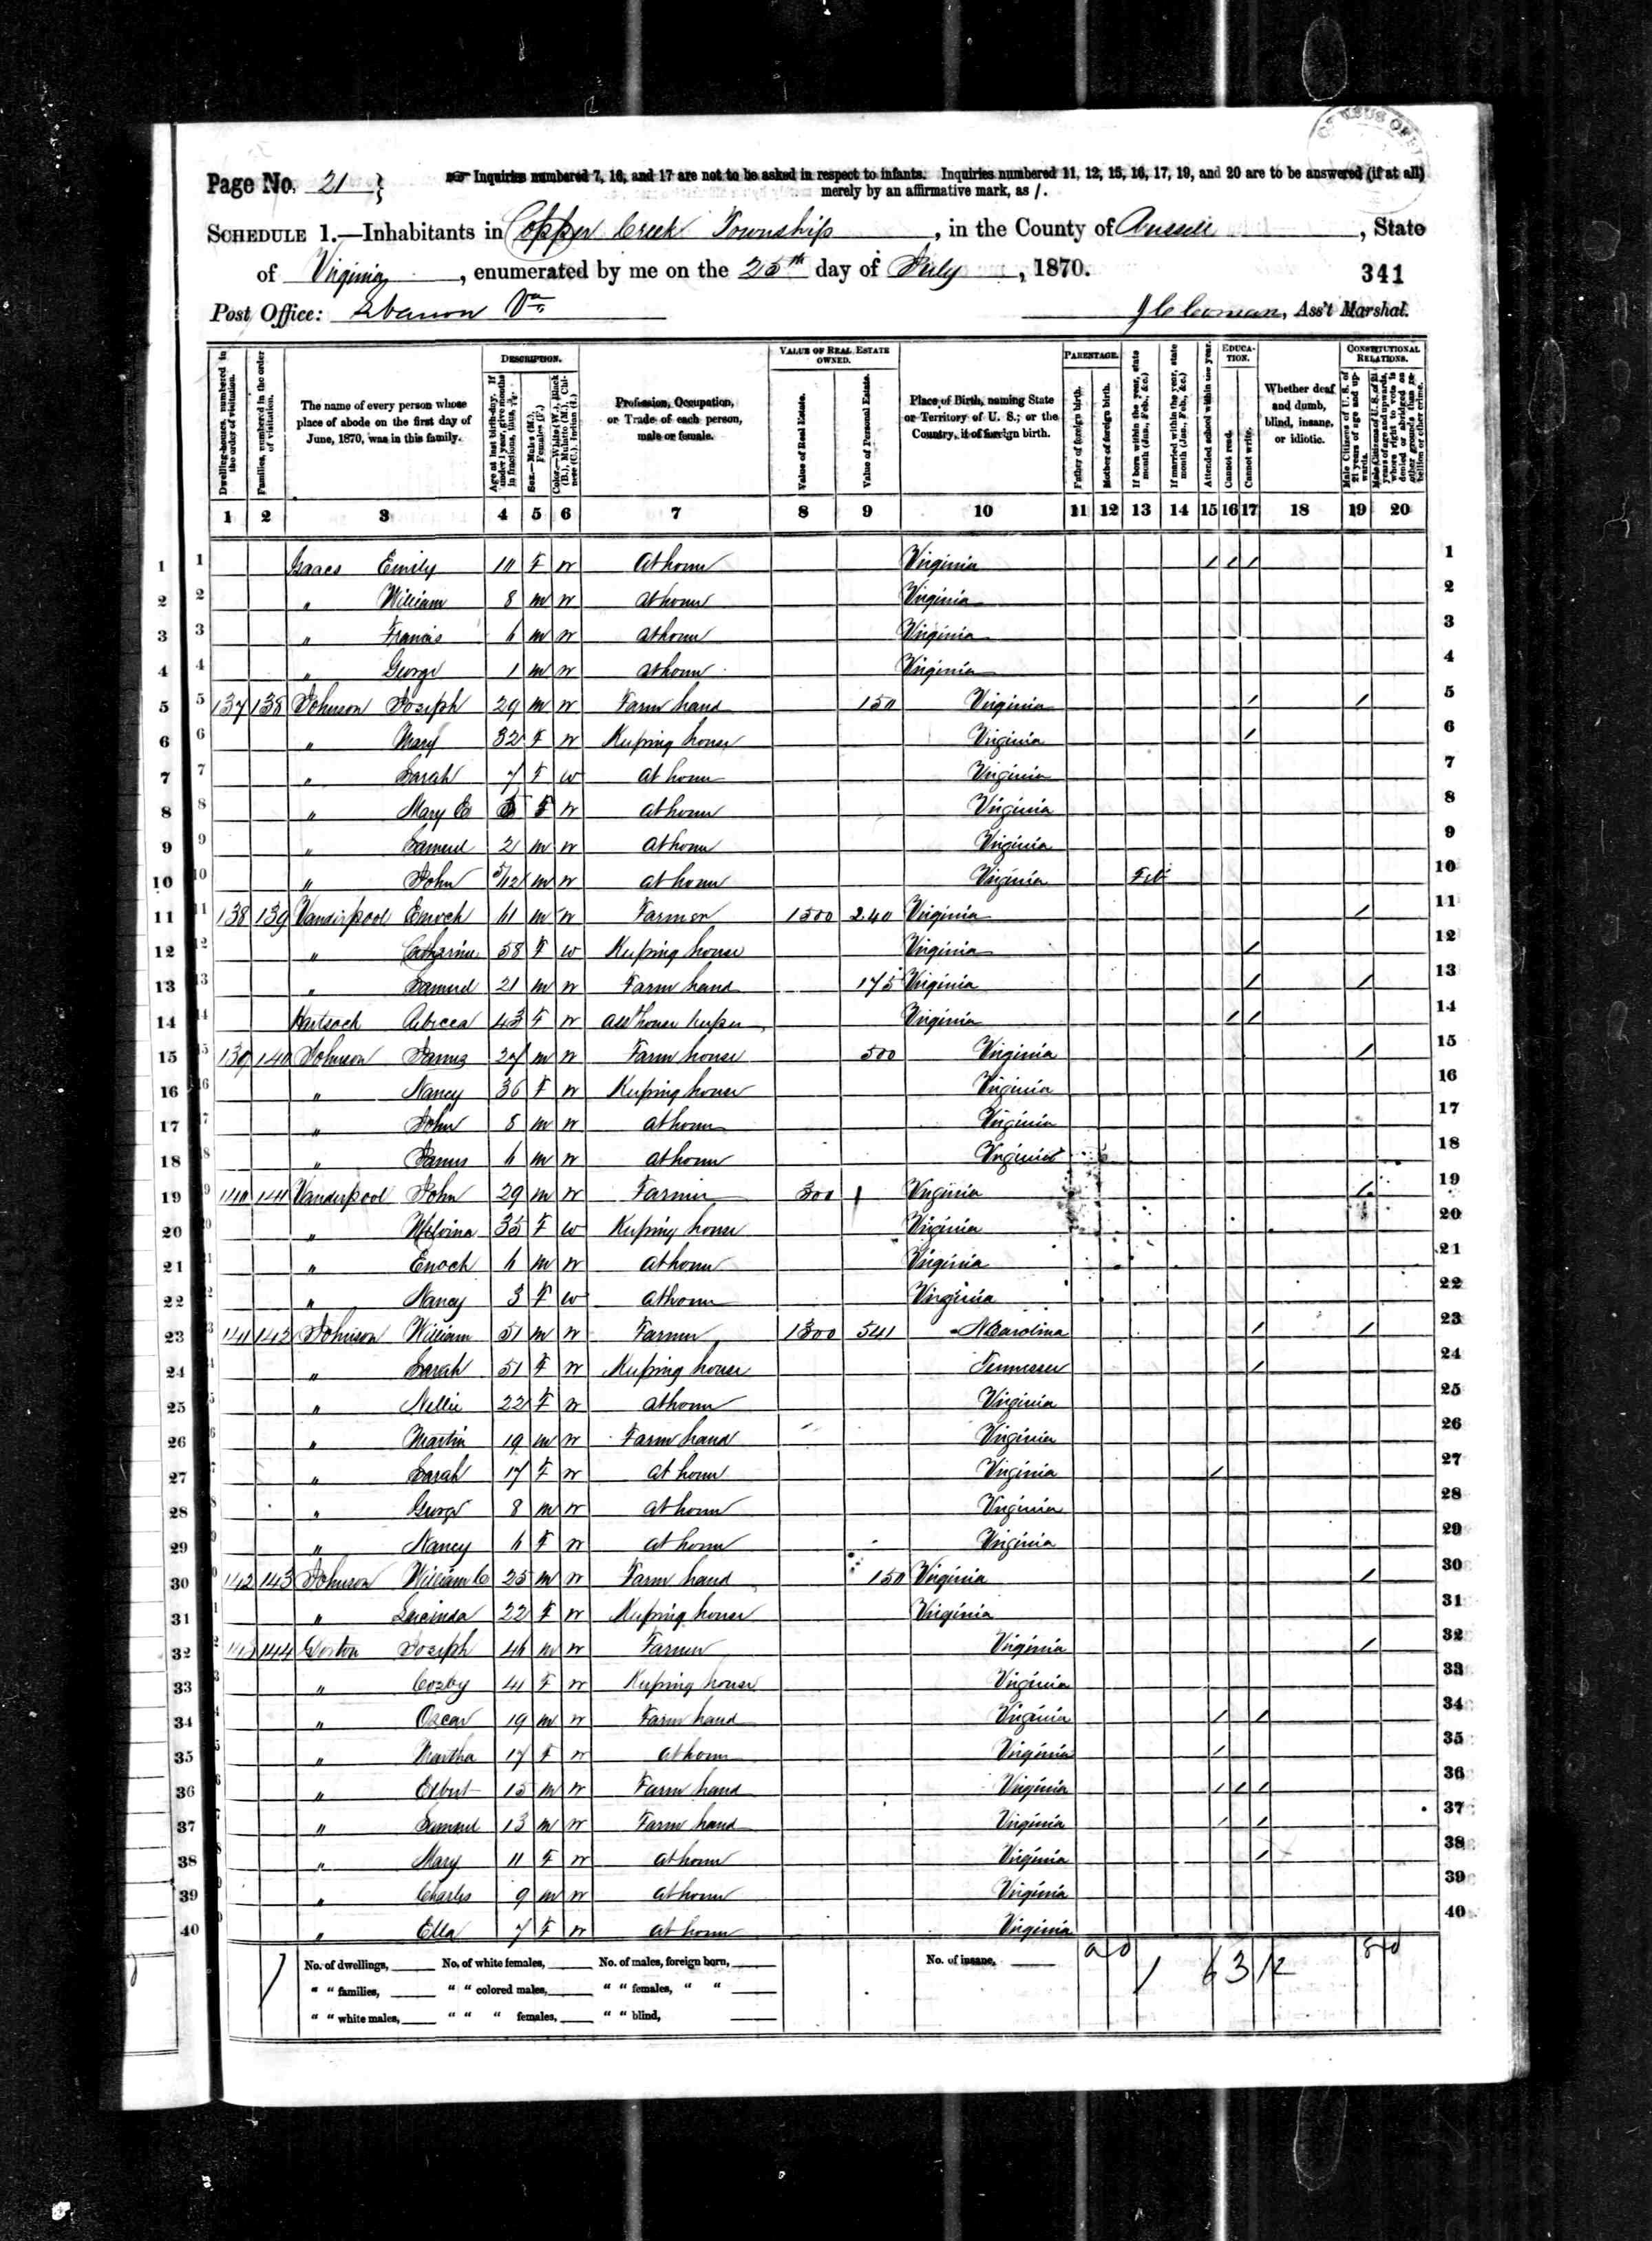 CENSUS OF
Page No. 21
Inquiries numbered 7, 16, and 17 are not to be asked in respect to infants. Inquiries numbered 11, 12, 15, 16, 17, 19, and 20 are to be answered (if at all)
merely by an affirmative mark, as /.
SCHEDULE 1.—Inhabitants in Copper Creek Township, in the County of Russell, State
of Virginia, enumerated by me on the 25th day of July, 1870.
341
Post Office: Lebanon Va
Ass't Marshal.
DESCRIPTION.
VALUE OF REAL ESTATE OWNED.
PARENTAGE.
EDUCATION.
CONSTITUTIONAL RELATIONS.
Dwelling-houses, numbered in the order of visitation.
Families, numbered in the order of visitation.
The name of every person whose place of abode on the first day of June, 1870, was in this family.
Age at last birth-day. If under 1 year, give months in fractions, thus, 3/12.
Sex.—Males (M.), Females (F.)
Color.—White (W.), Black (B.), Mulatto (M.), Chinese (C.), Indian (I.)
Profession, Occupation, or Trade of each person, male or female.
Value of Real Estate.
Value of Personal Estate.
Place of Birth, naming State or Territory of U. S.; or the Country, if of foreign birth.
Father of foreign birth.
Mother of foreign birth.
If born within the year, state month (Jan., Feb., &c.)
If married within the year, state month (Jan., Feb., &c.)
Attended school within the year.
Cannot read.
Cannot write.
Whether deaf and dumb, blind, insane, or idiotic.
Male Citizens of U. S. of 21 years of age and upwards.
Male Citizens of U. S. of 21 years of age and upwards, whose right to vote is denied or abridged on other grounds than rebellion or other crime.
1 2 3 4 5 6 7 8 9 10 11 12 13 14 15 16 17 18 19 20
1 1 Isaacs Emily 10 F W At home Virginia / / / 1
2 2 " William 8 M W At home Virginia 2
3 3 " Francis 6 M W At home Virginia 3
4 4 " George 1 M W At home Virginia 4
5 5 137 138 Johnson Joseph 29 M W Farm hand 150 Virginia / / 5
6 6 " Mary 32 F W Keeping house Virginia / 6
7 7 " Sarah 7 F W At home Virginia 7
8 8 " Mary E 5 F W At home Virginia 8
9 9 " Samuel 2 M W At home Virginia 9
10 10 " John 5/12 M W At home Virginia Feb 10
11 11 138 139 Vanderpool Enoch 61 M W Farmer 1500 240 Virginia / 11
12 12 " Catharine 58 F W Keeping house Virginia / 12
13 13 " Samuel 21 M W Farm hand 175 Virginia / / 13
14 14 Hartsock Rebecca 43 F W Asst house keeper Virginia / / 14
15 15 139 140 Johnson James 27 M W Farm house 500 Virginia / 15
16 16 " Nancy 36 F W Keeping house Virginia 16
17 " John 8 M W At home Virginia 17
18 " James 6 M W At home Virginia 18
19 140 141 Vanderpool John 29 M W Farmer 300 Virginia / 19
20 " Melvina 35 F W Keeping house Virginia 20
21 " Enoch 6 M W At home Virginia 21
22 " Nancy 3 F W At home Virginia 22
23 141 142 Johnson William 51 M W Farmer 1300 541 N Carolina / / 23
24 " Sarah 51 F W Keeping house Tennessee / 24
25 " Nellie 22 F W At home Virginia 25
26 " Martin 19 M W Farm hand Virginia 26
27 " Sarah 17 F W At home Virginia / 27
28 " George 8 M W At home Virginia 28
29 " Nancy 6 F W At home Virginia 29
30 142 143 Johnson William C 25 M W Farm hand 150 Virginia / 30
31 " Lucinda 22 F W Keeping house Virginia 31
32 143 144 Joseph 46 M W Farmer Virginia / 32
33 " Cozby 41 F W Keeping house Virginia 33
34 " Oscar 19 M W Farm hand Virginia / / 34
35 " Martha 17 F W At home Virginia / 35
36 " Elbert 15 M W Farm hand Virginia / / / 36
37 " Samuel 13 M W Farm hand Virginia / / 37
38 " Mary 11 F W At home Virginia / 38
39 " Charles 9 M W At home Virginia 39
40 " Ella 7 F W At home Virginia 40
No. of dwellings, No. of white females, No. of males, foreign born, No. of insane,
" " families, " " colored males, " " females, " "
" " white males, " " " females, " " blind,
0 0 / 6 3 12 8 0